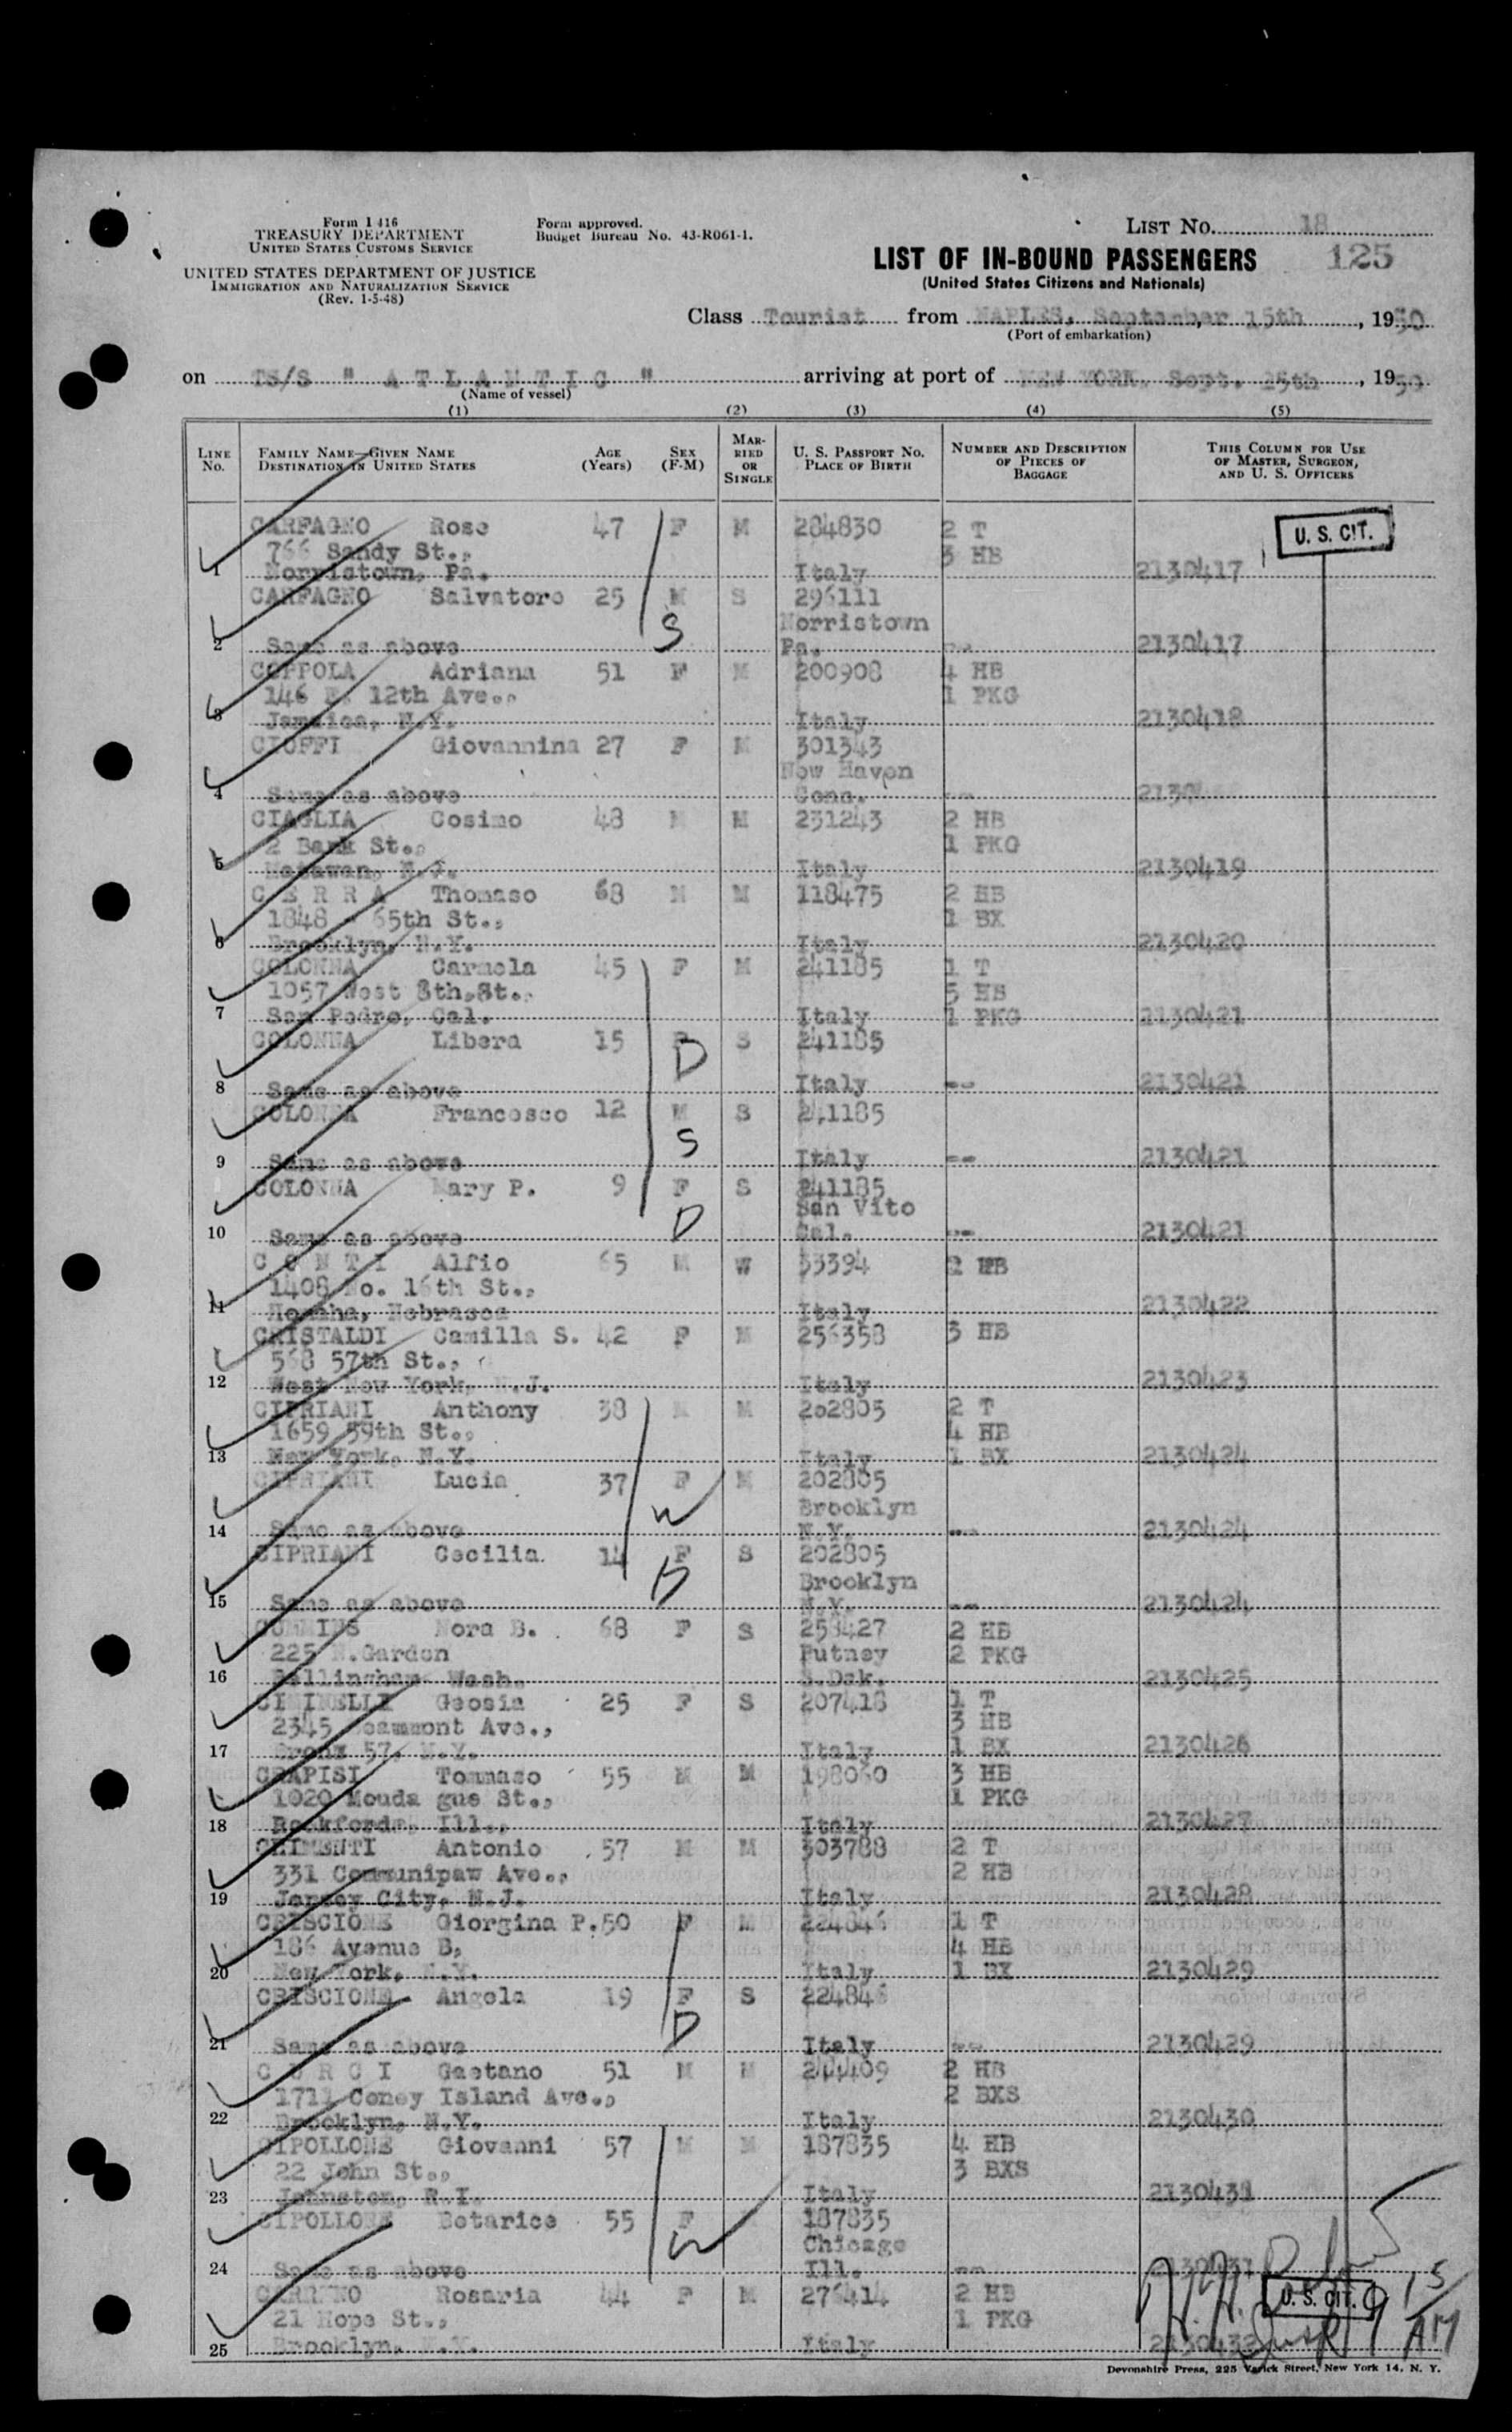 Form I 416
TREASURY DEPARTMENT
UNITED STATES CUSTOMS SERVICE
UNITED STATES DEPARTMENT OF JUSTICE
IMMIGRATION AND NATURALIZATION SERVICE
(Rev. 1-5-48)
Form approved.
Budget Bureau No. 43-R061-1.
LIST NO. 18
LIST OF IN-BOUND PASSENGERS 125
(United States Citizens and Nationals)
Class Tourist from NAPLES, September, 15th, 1950
(Port of embarkation)
on TS/S " A T L A N T I C " arriving at port of NEW YORK, Sept. 25th, 1950
(Name of vessel)
(1) (2) (3) (4) (5)
LINE No. FAMILY NAME—GIVEN NAME DESTINATION IN UNITED STATES AGE (Years) SEX (F-M) MARRIED OR SINGLE U. S. PASSPORT NO. PLACE OF BIRTH NUMBER AND DESCRIPTION OF PIECES OF BAGGAGE THIS COLUMN FOR USE OF MASTER, SURGEON, AND U. S. OFFICERS
CARFAGNO Rose 47 F M 284830 2 T U. S. CIT.
766 Sandy St., 3 HB
1 Norristown, Pa. Italy 2130417
CARFAGNO Salvatore 25 M S 296111
Norristown
2 Same as above S Pa. -- 2130417
COPPOLA Adriana 51 F M 200908 4 HB
146 12th Ave., 1 PKG
3 Jamaica, N.Y. Italy 2130418
CIOFFI Giovannina 27 F M 301343
New Haven
4 Same as above Conn. -- 2130
CIAGLIA Cosimo 48 M M 231243 2 HB
2 Bank St., 1 PKG
5 Matawan, N.J. Italy 2130419
C E R R A Thomaso 68 M M 118475 2 HB
1848 - 65th St., 1 BX
6 Brooklyn, N.Y. Italy 2130420
COLONNA Carmela 45 F M 241185 1 T
1057 West 8th.St., 5 HB
7 San Pedro, Cal. Italy 1 PKG 2130421
COLONNA Libera 15 D S 241185
8 Same as above Italy -- 2130421
COLONNA Francesco 12 M S 241185
S
9 Same as above Italy -- 2130421
COLONNA Mary P. 9 F S 241185
San Vito
10 Same as above D Cal. -- 2130421
C O N T I Alfio 65 M W 33394 2 HB
1408 No. 16th St.,
11 Homaha, Nebrasca Italy 2130422
CRISTALDI Camilla S. 42 F M 256358 3 HB
568 57th St.,
12 West New York, N.J. Italy 2130423
CIPRIANI Anthony 38 M M 202805 2 T
1659 59th St., 4 HB
13 New York, N.Y. Italy 1 BX 2130424
CIPRIANI Lucia 37 F M 202805
W Brooklyn
14 Same as above N.Y. -- 2130424
CIPRIANI Cecilia. 14 F S 202805
D Brooklyn
15 Same as above N.Y. -- 2130424
CUMMINS Nora B. 68 F S 258427 2 HB
225 N.Garden Putney 2 PKG
16 Bellingham Wash. S.Dak. 2130425
CIMINELLI Geosia 25 F S 207418 1 T
2345 Beaumont Ave., 3 HB
17 Bronx 57, N.Y. Italy 1 BX 2130426
CRAPISI Tommaso 55 M M 198060 3 HB
1020 Mouda gue St., 1 PKG
18 Rockford, Ill., Italy 2130427
CRIMENTI Antonio 57 M M 303788 2 T
331 Communipaw Ave., 2 HB
19 Jersey City, N.J. Italy 2130428
CRISCIONE Giorgina P. 50 F M 224846 1 T
186 Avenue B, 4 HB
20 New York, N.Y. Italy 1 BX 2130429
CRISCIONE Angela 19 F S 224846
D
21 Same as above Italy -- 2130429
C U R C I Gaetano 51 M M 244409 2 HB
1711 Coney Island Ave., 2 BXS
22 Brooklyn, N.Y. Italy 2130430
CIPOLLONE Giovanni 57 M M 187835 4 HB
22 John St., 3 BXS
23 Johnston, R.I. Italy 2130431
CIPOLLONE Betarice 55 F 187835
W Chicago
24 Same as above Ill. -- 2130431
Rosaria 44 F M 276414 2 HB U. S. CIT.
21 Hope St., 1 PKG
25 Brooklyn, N.Y. Italy 2130432 AM
Devonshire Press, 225 Varick Street, New York 14, N. Y.